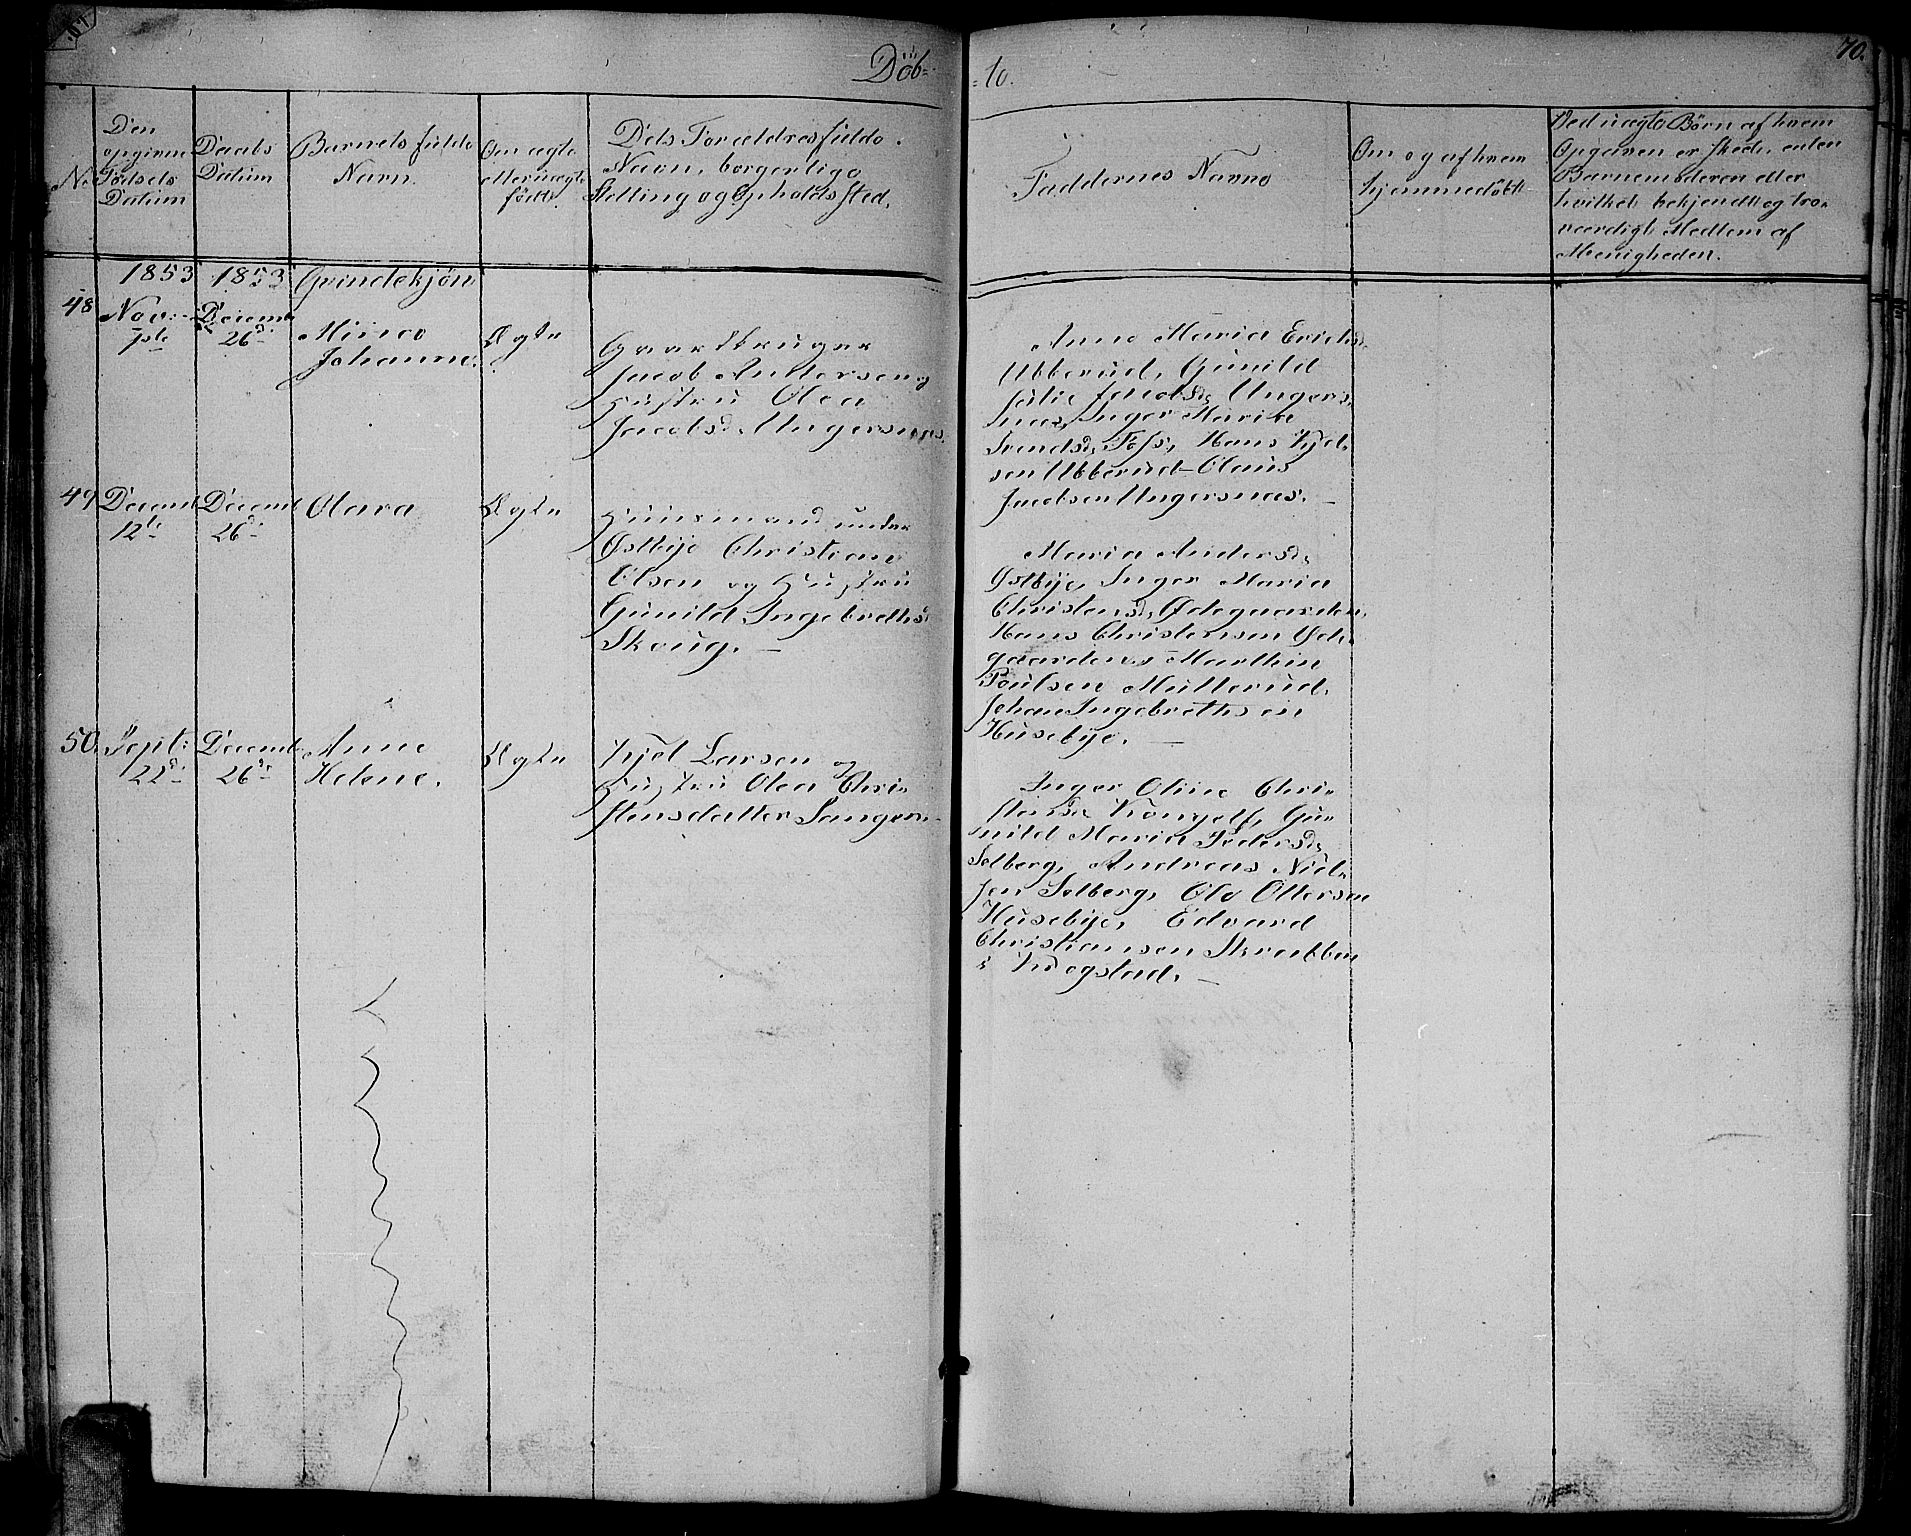 Döb=
=te.
70.
No
Den
opgivne
Fødsels
Datum
Daabs
Datum
Barnets fulde
Navn.
Om ægte
eller uægte
født.
Dets Forældres fulde
Navn, borgerlige
Stilling og Opholds Sted.
Faddernes Navne
Om og af hvem
hjemmedøbt
Ved uægte Børn af hvem
Opgaven er skedt, enten
Barnemoderen eller
hvilket bekjendt og tro-
værdigt Medlem af
Menigheden.
1853 1853 Qvindekjøn
48
Nov:
7de
Decemb
26de
Mine
Johanne.
Ægte
Gaardbruger
Jacob Andersen og
Hustru Olea
Jacobsd. Ungersnæs.
Anne Maria Erichsd.
Ubberud, Gunild
Julie Jacobsd. Ungers-
næs, Inger Maria
Svendsd. Foss, Hans Kjel-
sen Ubberud Olaus
Jacobsen Ungersnæs. —
49
Decemb
12te
Decemb
26de
Olava
Ægte
Huusmand under
Østbye Christian
Olsen og Hustru
Gunild Ingebrethsd.
Skoug. —
Maria Andersd.
Østbye, Inger Maria
Christensd. Ødegaarden,
Hans Christensen Øde-
gaarden, Marthin
Poulsen Mullerud,
Johan Ingebrethsen
Husebye. —
50.
Sept:
22de
Decemb
26de
Anne
Helene.
Ægte
Kjel Larsen og
Hustru Olea Chri-
stensdatter Sangern
Inger Oline Chri-
stensd. Gu-
nild Maria Pedersd.
Solberg, Andreas Niel-
sen Solberg, Ole Ottersen
Husebye, Edvard
Christiansen Skrabben
i Krogstad. —